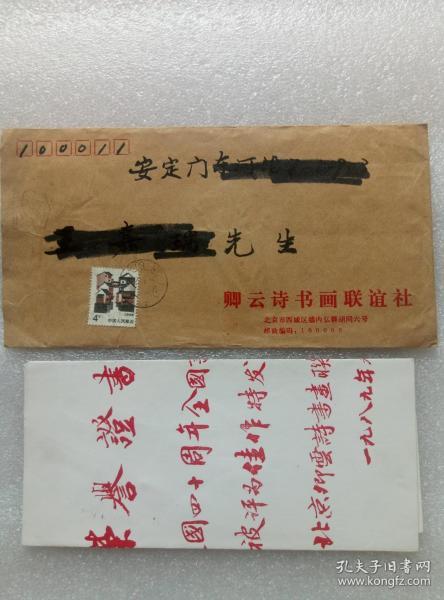 100011
安定门
先生
卿云诗书画联谊社
北京市西城区德内弘善胡同六号
邮政编码：100009
中国人民邮政
荣誉證书
国四十周年全国
被评为佳作特发
北京卿雲詩書畫聯
一九八九年
孔夫子旧书网
www.kongfz.com